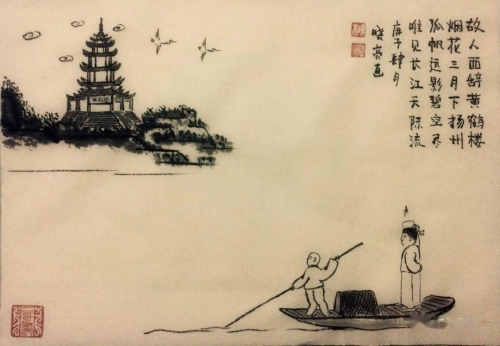 故人西辞黄鹤楼
烟花三月下扬州
孤帆远影碧空尽
唯见长江天际流
庚子肆月